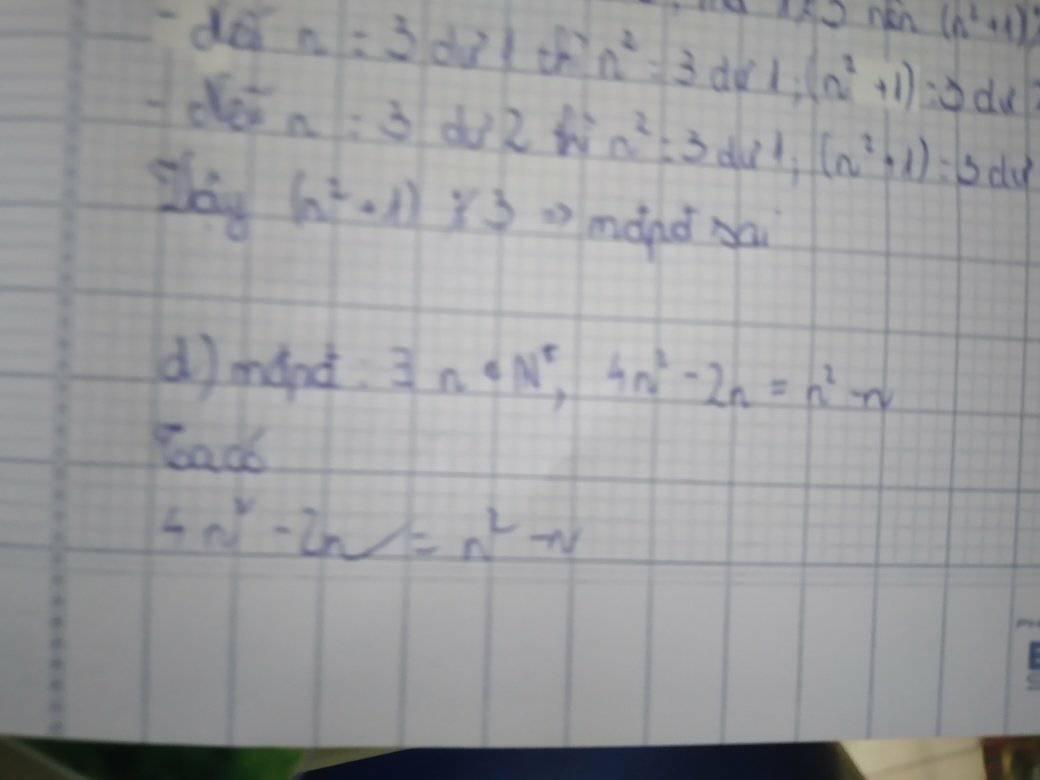 nên (n² + 1)
- Nếu n : 3 dư 1 thì n² : 3 dư 1; (n² + 1) : 3 dư
- Nếu n : 3 dư 2 thì n² : 3 dư 1; (n² + 1) : 3 dư
Vậy (n² + 1) ⋮̸ 3 => mđpđ sai
d) mđpđ : ∃ n ∈ N*, 4n² - 2n = n² - n
Ta có
4n² - 2n = n² - n